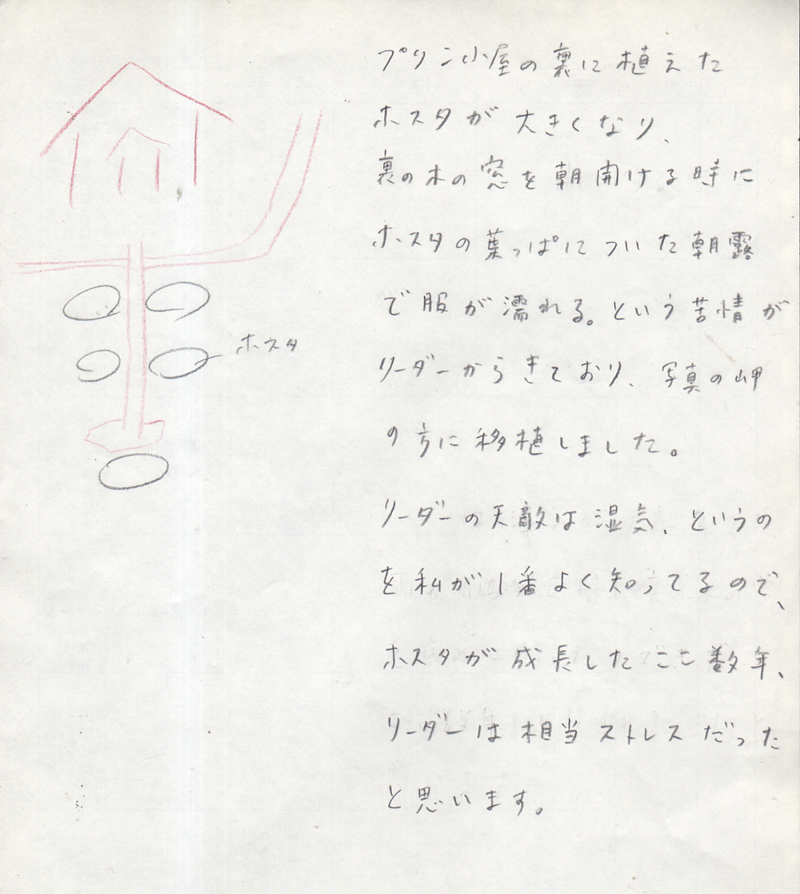 プリン小屋の裏に植えた
ホスタが大きくなり、
裏の木の窓を朝開ける時に
ホスタの葉っぱについた朝露
で服が濡れる。という苦情が
ホスタ
リーダーからきており、写真の岬
の方に移植しました。
リーダーの天敵は湿気、というの
を私が1番よく知ってるので、
ホスタが成長したここ数年、
リーダーは相当ストレスだった
と思います。